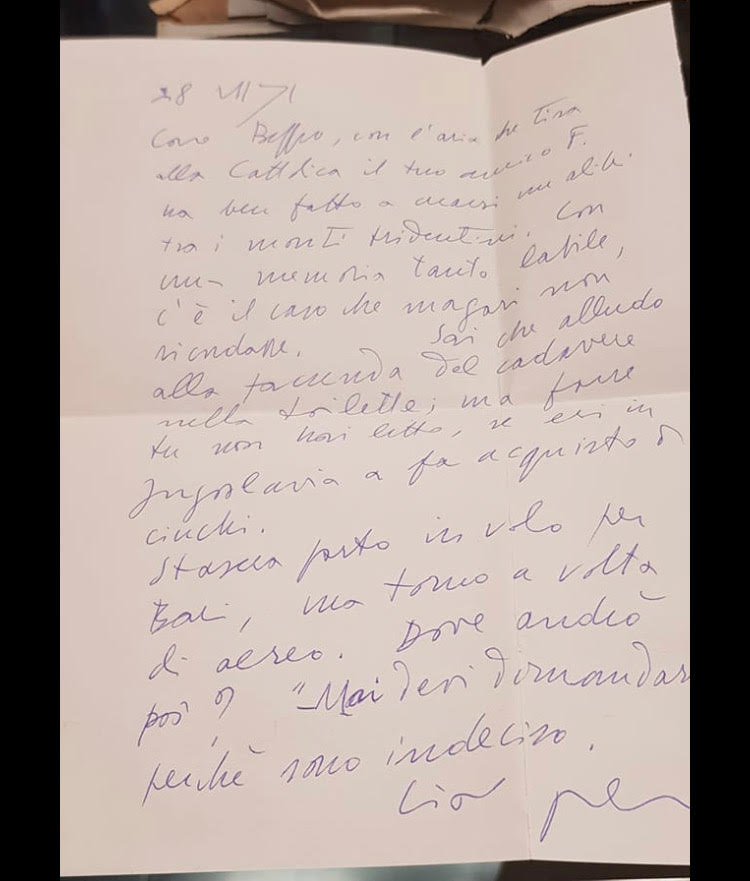 28 VII 71
Caro Beppo, con l'aria che tira
alla Cattolica il tuo amico F.
ha ben fatto a crearsi un alibi
tra i monti tridentini. Con
una memoria tanto labile,
c'è il caso che magari non
ricordasse. Sai che alludo
alla faccenda del cadavere
nella toilette; ma forse
tu non hai letto, se eri in
Jugoslavia a fa acquisto di
ciuchi.
Stasera parto in volo per
Bari, ma torno a volta
di aereo. Dove andrò
poi? "Mai devi domandar
perchè sono indeciso.
Ciao